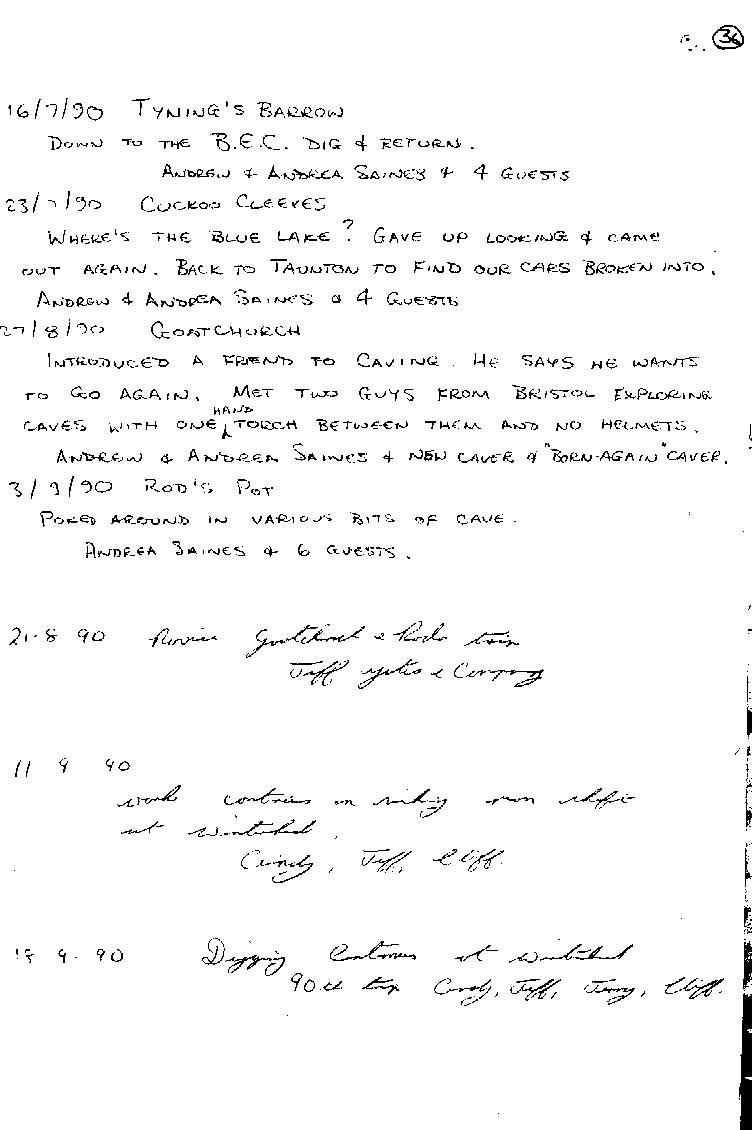 36
16/7/90 TYNING'S BARROW
DOWN TO THE B.E.C. DIG & RETURN.
ANDREW & ANDREA SAINES & 4 GUESTS
23/7/90 CUCKOO CLEEVES
WHERE'S THE BLUE LAKE? GAVE UP LOOKING & CAME
OUT AGAIN. BACK TO TAUNTON TO FIND OUR CARS BROKEN INTO.
ANDREW & ANDREA SAINES & 4 GUESTS
27/8/90 GOATCHURCH
INTRODUCED A FRIEND TO CAVING. HE SAYS HE WANTS
TO GO AGAIN. MET TWO GUYS FROM BRISTOL EXPLORING
CAVES WITH ONE HAND TORCH BETWEEN THEM AND NO HELMETS.
ANDREW & ANDREA SAINES & NEW CAVER & "BORN-AGAIN" CAVER.
3/9/90 ROD'S POT
POKED AROUND IN VARIOUS BITS OF CAVE.
ANDREA SAINES & 6 GUESTS.
21-8 90 Novice Goatchurch & Rods trip
Jeff, Yates & Company
11 9 90
work continues on making new shaft
at
Cindy, Jeff, Cliff.
18 9. 90 Digging Continues at
90 ft trip Cindy, Jeff, , Cliff.